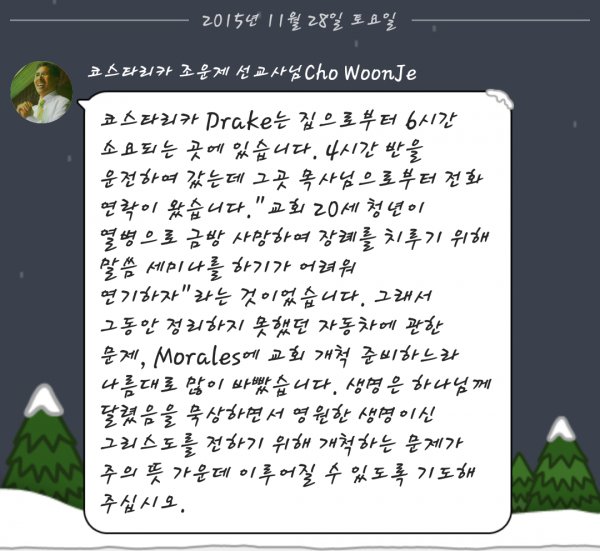 2015년 11월 28일 토요일
코스타리카 조운제 선교사님Cho WoonJe
코스타리카 Drake는 집으로부터 6시간
소요되는 곳에 있습니다. 4시간 반을
운전하여 갔는데 그곳 목사님으로부터 전화
연락이 왔습니다."교회 20세 청년이
열병으로 금방 사망하여 장례를 치루기 위해
말씀 세미나를 하기가 어려워
연기하자"라는 것이었습니다. 그래서
그동안 정리하지 못했던 자동차에 관한
문제, Morales에 교회 개척 준비하느라
나름대로 많이 바빴습니다. 생명은 하나님께
달렸음을 묵상하면서 영원한 생명이신
그리스도를 전하기 위해 개척하는 문제가
주의 뜻 가운데 이루어질 수 있도록 기도해
주십시오.